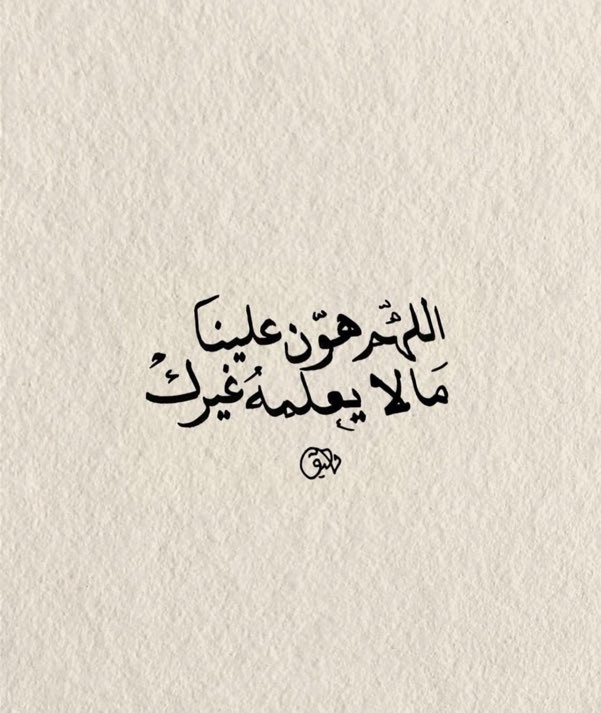 اللهُمّ هوّن علينا
مَا لا يعلمهُ غيركْ